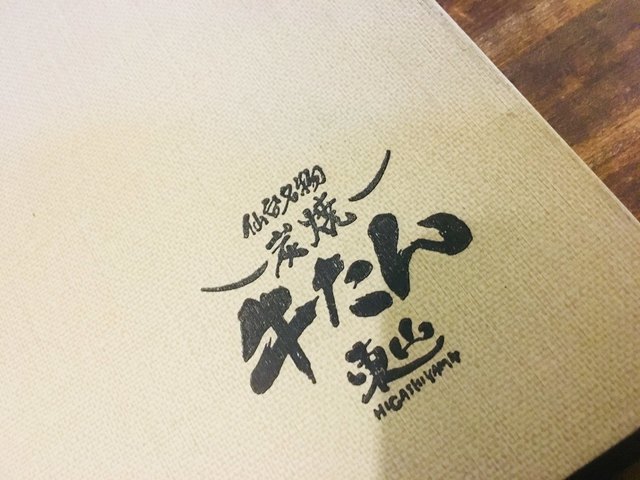 仙台名物
炭焼
牛たん
東山
HIGASHIYAMA